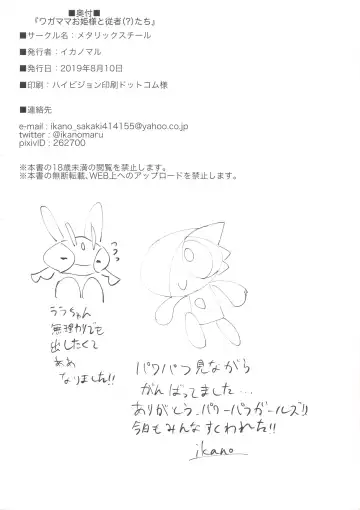 ■奥付■
『ワガママお姫様と従者(?)たち』
■サークル名：メタリックスチール
■発行者：イカノマル
■発行日：2019年8月10日
■印刷：ハイビジョン印刷ドットコム様
■連絡先
e-mail : ikano_sakaki414155@yahoo.co.jp
twitter : @ikanomaru
pixivID : 262700
※本書の18歳未満の閲覧を禁止します。
※本書の無断転載、WEB上へのアップロードを禁止します。
ララちゃん
無理矢理でも
出したくて
ああ
なりました!!
パワパフ見ながら
がんばってました…
ありがとう パワーパフガールズ!!
今日もみんなすくわれた!!
ikano